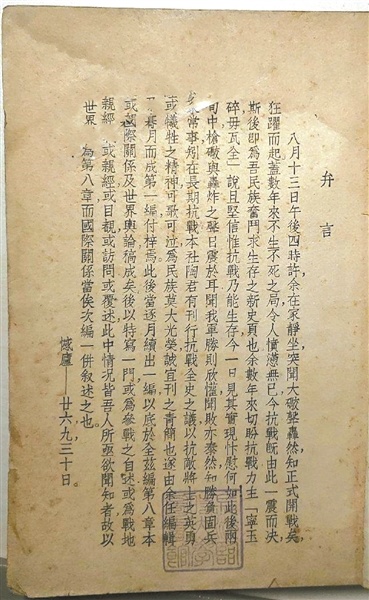 弁言
八月十三日午後四時許，余在家靜坐突聞大礮聲轟然知正式開戰矣，
狂躍而起蓋數年來不生不死之局，令人憤懣無已今抗戰旣由此一震而決
斯後卽為吾民族奮鬥求生存之新史頁也余數年來切盼抗戰力主「寧玉
碎毋瓦全」說且堅信惟抗戰乃能生存今一日見其實現忭慰何如此後兩
旬中槍礮與轟炸之聲日震於耳聞我軍勝則欣懽聞敗亦泰然知勝負固兵
常事矧在長期抗戰本社陶君有刊行抗戰全史之議以抗敵將士之英勇
或犧牲之精神可歌可泣為民族莫大光榮誠宜刊之靑簡也遂由余任編輯
月而成第一編付梓焉此後當逐月續出一編以底於全茲編第八章本
或國際關係及世界輿論稿成矣後以特寫一門或為參戰之自述或為戰地
親經或親經或目覩或訪問或覆述此中情況皆吾人所亟欲聞知者故以
世界 為第八章而國際關係當俟次編一併敘述之也。
憾廬——廿六九三十日。